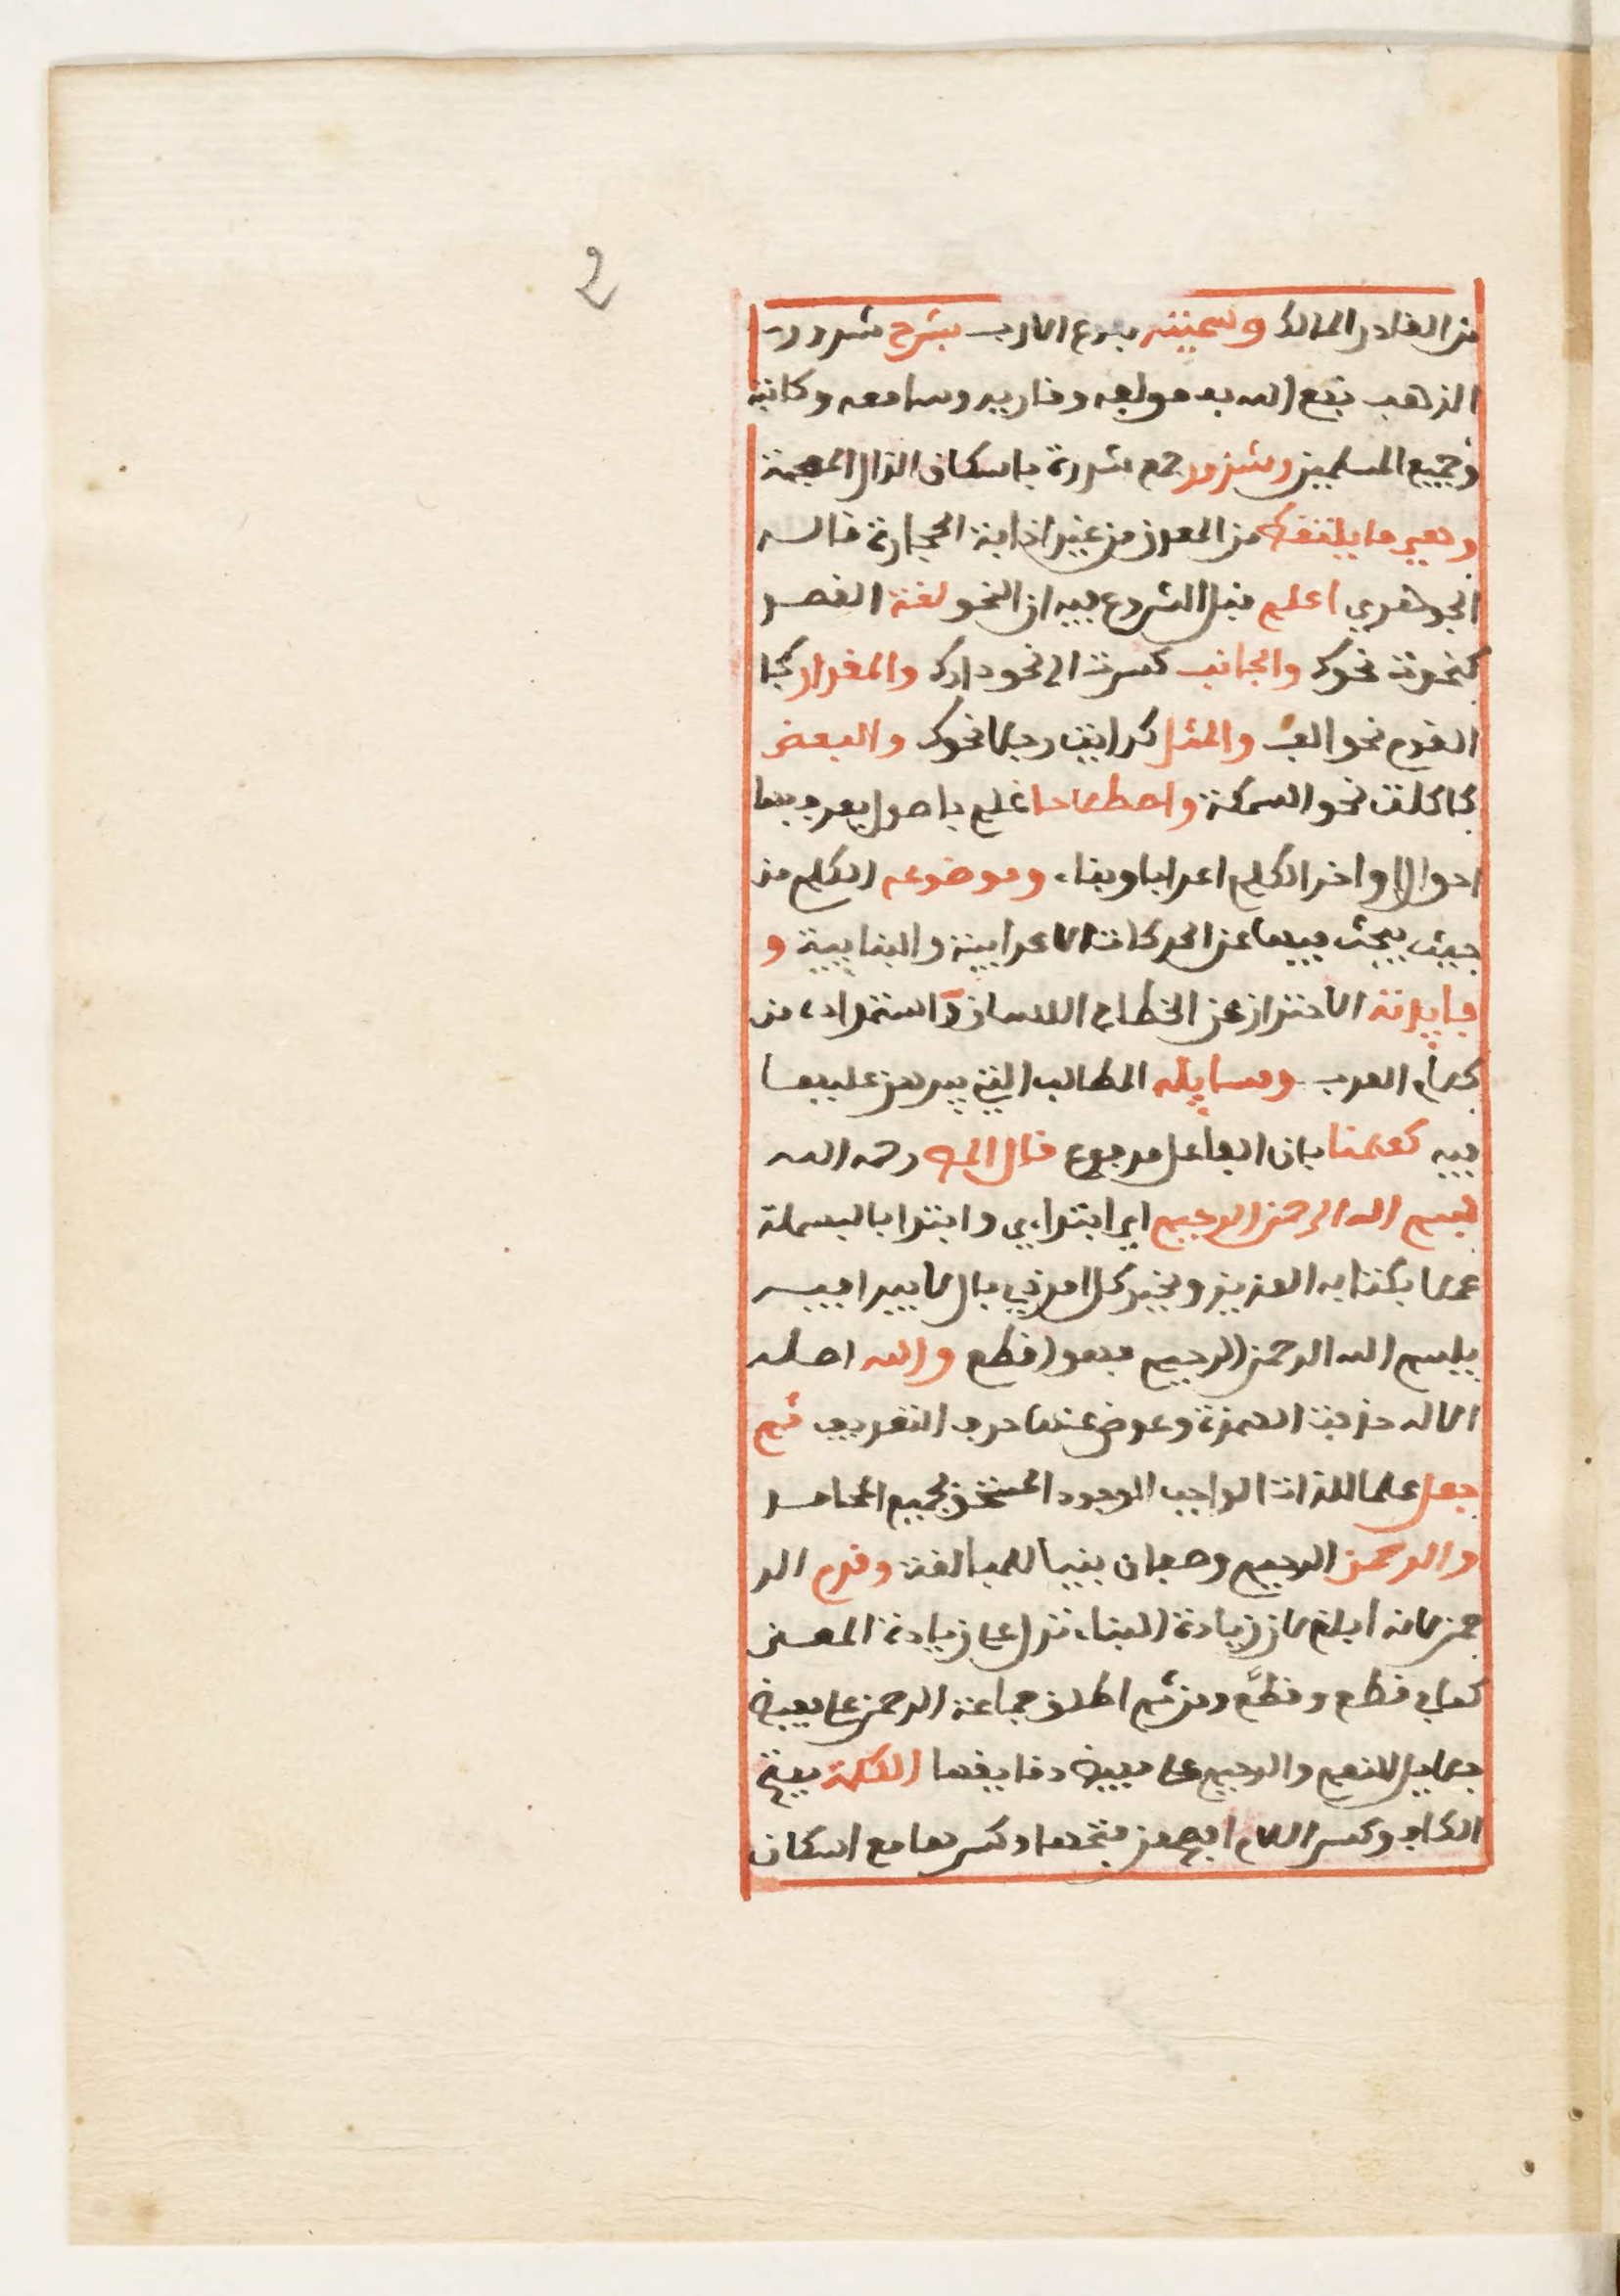 2
من القادر المالك وسميته ببلوغ الارب بشرح شذور
الذهب نفع الله به مولفه وقاريه وسامعه وكاتبه
وجميع المسلمين وشذور جمع شذرة باسكان الذال المعجمة
وهي ما يلتقط من المعدن من غير اذابة الحجارة قاله
الجوهري اعلم قبل الشروع فيه ان النحو لغة القصد
كنحوت نحوك والجانب كسرت الى نحو دارك والمقدار كجا
القوم نحو الف والمثل كرايت رجلا نحوك والبعض
كاكلت نحو السمكة واصطلاحا علم باصول يعرف بها
احوال اواخر الكلم اعرابا وبناء وموضوعه الكلم من
حيث يبحث فيها عن الحركات الاعرابية والبنايية و
فايدته الاحتراز عن الخطا في اللسان واستمداده من
كلام العرب ومسايله المطالب التي يبرهن عليها
فيه كعلمنا بان الفاعل مرفوع قال المص رحمه الله
بسم الله الرحمن الرحيم اي ابتداءي وابتدا بالبسملة
عملا بكتابه العزيز وبخبر كل امر ذي بال لا يبدا فيه
ببسم الله الرحمن الرحيم فهو اقطع والله اصله
الاله حذفت الهمزة وعوض عنها حرف التعريف ثم
جعل علما للذات الواجب الوجود المستحق لجميع المحامد
والرحمن الرحيم وصفان بنيا للمبالغة وقدم الر
حمن لانه ابلغ لان زيادة البناء تدل على زيادة المعنى
كما في قطع وقطّع ومن ثم اطلق جماعة الرحمن على مفيض
جلايل النعم والرحيم على مفيض دقايقها الكلمة بفتح
الكاف وكسر اللام افصح من فتحها وكسرها مع اسكان